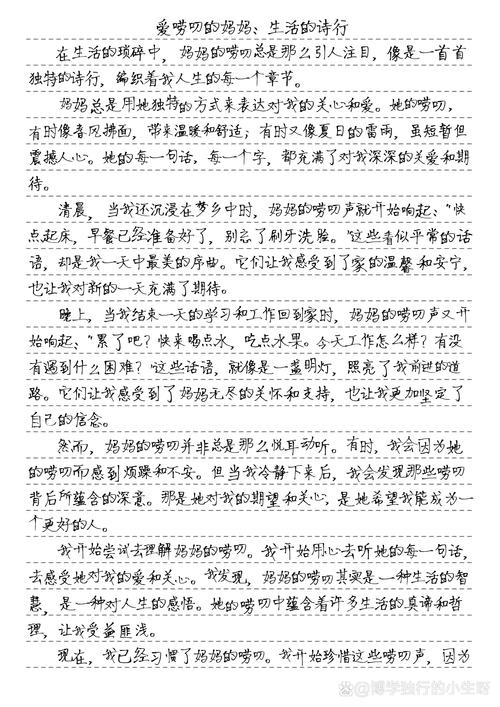 爱唠叨的妈妈：生活的诗行
在生活的琐碎中，妈妈的唠叨总是那么引人注目，像是一首首
独特的诗行，编织着我人生的每一个章节。
妈妈总是用她独特的方式来表达对我的关心和爱。她的唠叨，
有时像春风拂面，带来温暖和舒适；有时又像夏日的雷雨，虽短暂但
震撼人心。她的每一句话，每一个字，都充满了对我深深的关爱和期
待。
清晨，当我还沉浸在梦乡中时，妈妈的唠叨声就开始响起：“快
点起床，早餐已经准备好了，别忘了刷牙洗脸。”这些看似平常的话
语，却是我一天中最美的序曲。它们让我感受到了家的温馨和安宁，
也让我对新的一天充满了期待。
晚上，当我结束一天的学习和工作回到家时，妈妈的唠叨声又开
始响起：“累了吧？快来喝点水，吃点水果。今天工作怎么样？有没
有遇到什么困难？”这些话语，就像是一盏明灯，照亮了我前进的道
路。它们让我感受到了妈妈无尽的关怀和支持，也让我更加坚定了
自己的信念。
然而，妈妈的唠叨并非总是那么悦耳动听。有时，我会因为她
的唠叨而感到烦躁和不安。但当我冷静下来后，我会发现那些唠叨
背后所蕴含的深意。那是她对我的期望和关心，是她希望我能成为一
个更好的人。
我开始尝试去理解妈妈的唠叨。我开始用心去听她的每一句话，
去感受她对我的爱和关心。我发现，妈妈的唠叨其实是一种生活的智
慧，是一种对人生的感悟。她的唠叨中蕴含着许多生活的真谛和哲
理，让我受益匪浅。
现在，我已经习惯了妈妈的唠叨。我开始珍惜这些唠叨声，因为
@博学独行的小生呀